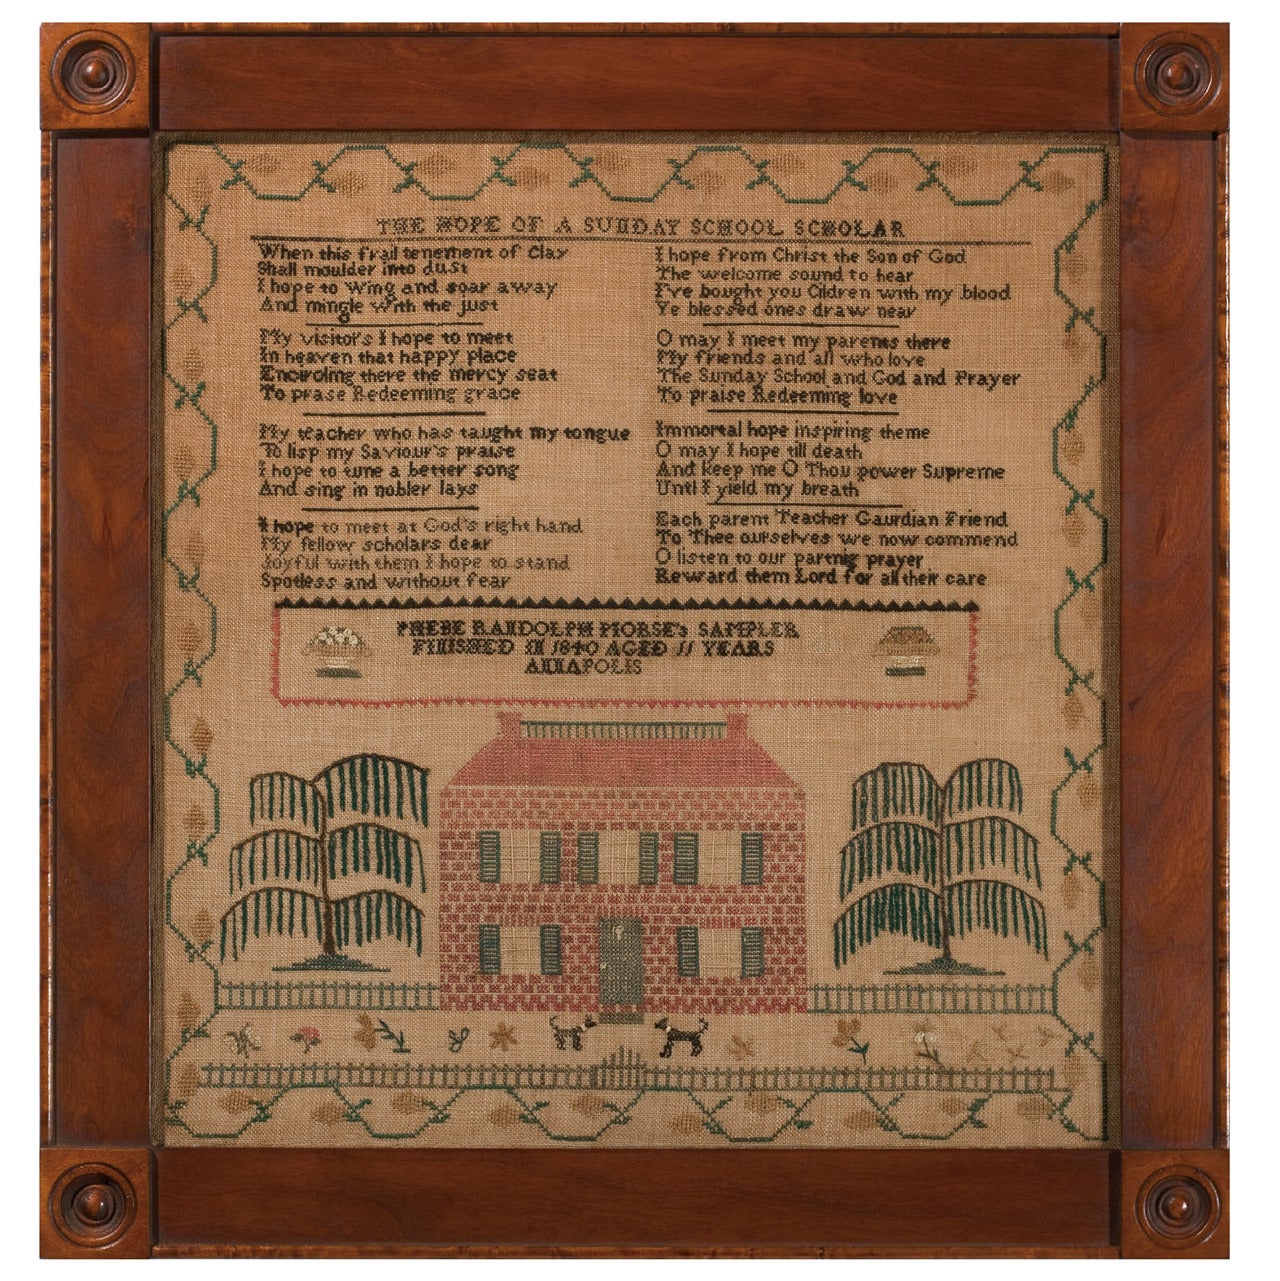 THE HOPE OF A SUNDAY SCHOOL SCHOLAR
When this frail tenement of Clay
Shall moulder into dust
I hope to Wing and soar away
And mingle With the just
My visitors I hope to meet
In heaven that happy place
Encircling there the mercy seat
To prase Redeeming grace
My teacher who has taught my tongue
To lisp my Saviour's praise
I hope to tune a better song
And sing in nobler lays
I hope to meet at God's right hand
My fellow scholars dear
Joyful with them I hope to stand
Spotless and without fear
I hope from Christ the Son of God
The welcome sound to hear
I've bought you Cildren with my blood
Ye blessed ones draw near
O may I meet my parents there
My friends and all who love
The Sunday School and God and Prayer
To praise Redeeming love
Immortal hope inspiring theme
O may I hope till death
And keep me O Thou power Supreme
Until I yield my breath
Each parent Teacher Gaurdian Friend
To Thee ourselves we now commend
O listen to our partnig prayer
Reward them Lord for all their care
PHEBE RANDOLPH MORSE's SAMPLER
FINISHED IN 1840 AGED 11 YEARS
ANNAPOLIS